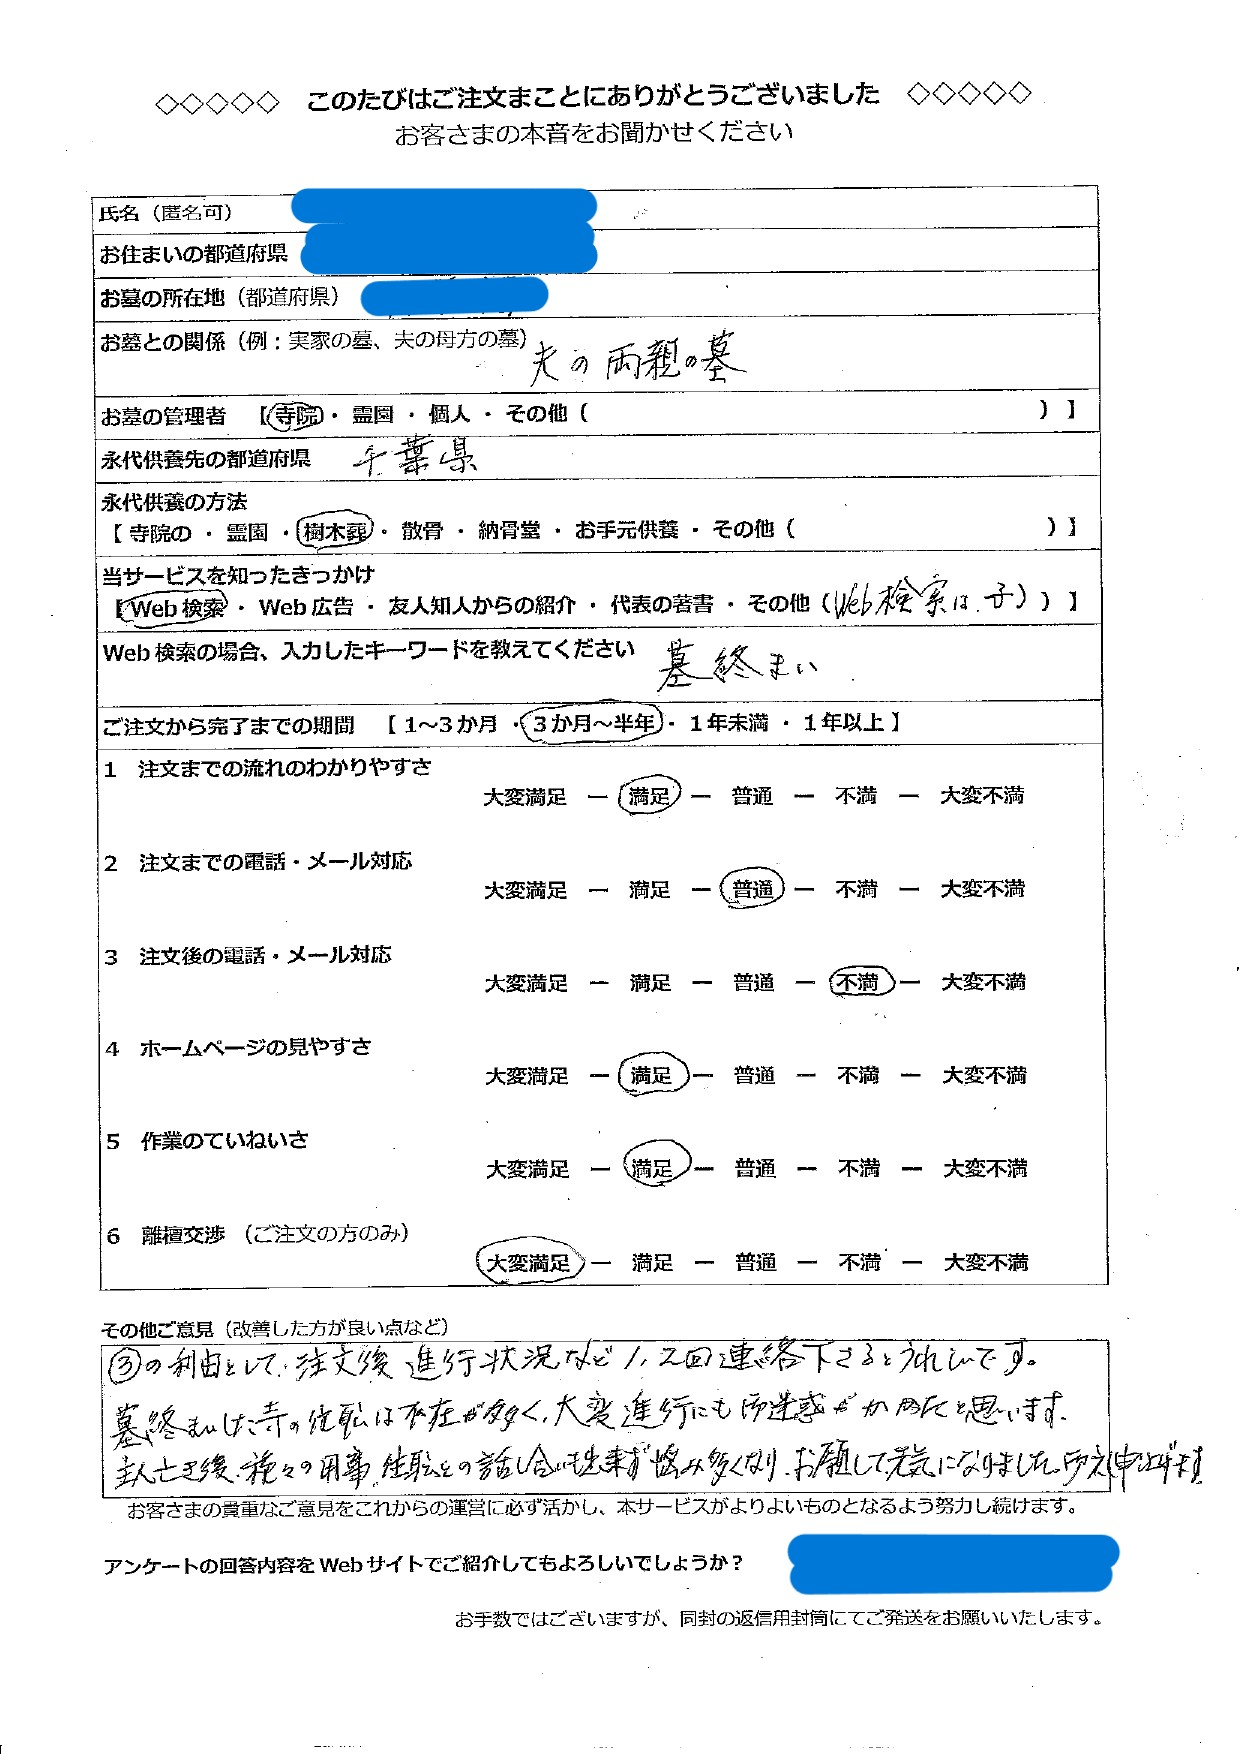 ◇◇◇◇◇ このたびはご注文まことにありがとうございました ◇◇◇◇◇
お客さまの本音をお聞かせください
氏名（匿名可）
お住まいの都道府県
お墓の所在地（都道府県）
お墓との関係（例：実家の墓、夫の母方の墓） 夫の両親の墓
お墓の管理者 【寺院・ 霊園 ・ 個人 ・ その他（ ）】
永代供養先の都道府県 千葉県
永代供養の方法
【 寺院の ・ 霊園 ・ 樹木葬 ・ 散骨 ・ 納骨堂 ・ お手元供養 ・ その他（ ）】
当サービスを知ったきっかけ
【Web 検索 ・ Web 広告 ・ 友人知人からの紹介 ・ 代表の著書 ・ その他（Web検索は、子））】
Web 検索の場合、入力したキーワードを教えてください 墓終まい
ご注文から完了までの期間 【 1～3 か月 ・ 3 か月～半年 ・ 1 年未満 ・ 1 年以上 】
1 注文までの流れのわかりやすさ
大変満足 ー 満足 ー 普通 ー 不満 ー 大変不満
2 注文までの電話・メール対応
大変満足 ー 満足 ー 普通 ー 不満 ー 大変不満
3 注文後の電話・メール対応
大変満足 ー 満足 ー 普通 ー 不満 ー 大変不満
4 ホームページの見やすさ
大変満足 ー 満足 ー 普通 ー 不満 ー 大変不満
5 作業のていねいさ
大変満足 ー 満足 ー 普通 ー 不満 ー 大変不満
6 離檀交渉 （ご注文の方のみ）
大変満足 ー 満足 ー 普通 ー 不満 ー 大変不満
その他ご意見（改善した方が良い点など）
③の利由として、注文後 進行状況など 1、2回連絡下さるとうれしいです。
墓終まいした寺の住職は不在が多く、大変進行にも御迷惑がか と思います。
主人亡き後、種々の用事、住職との話し合いも出来ず悩み多くなり、お願いして元気になりました。 申上げます
お客さまの貴重なご意見をこれからの運営に必ず活かし、本サービスがよりよいものとなるよう努力し続けます。
アンケートの回答内容を Web サイトでご紹介してもよろしいでしょうか？
お手数ではございますが、同封の返信用封筒にてご発送をお願いいたします。